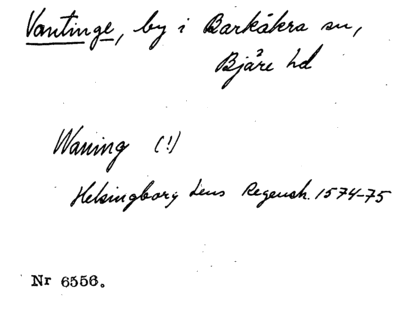 Vantinge, by i Barkåkra sn,
Bjäre hd
Waning (!)
Helsingborg Lens Regensk. 1574-75
Nr 6556.